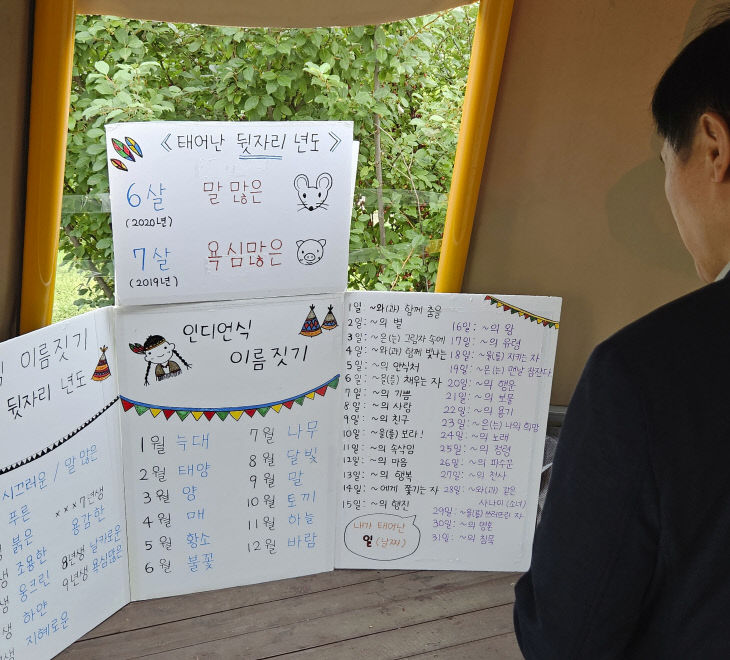 《태어난 뒷자리 년도》
6살 말 많은
(2020년)
7살 욕심많은
(2019년)
이름짓기
뒷자리 년도
시끄러운 / 말 많은
푸른
×××7년생
용감한
붉은
조용한
8년생 날카로운
웅크린
9년생 욕심많은
하얀
지혜로운
인디언식
이름짓기
1월 늑대
2월 태양
3월 양
4월 매
5월 황소
6월 불꽃
7월 나무
8월 달빛
9월 말
10월 토끼
11월 하늘
12월 바람
1일 : ~와(과) 함께 춤을
2일 : ~의 별
3일 : ~은(는) 그림자 속에
4일 : ~와(과) 함께 빛나는
5일 : ~의 안식처
6일 : ~을(를) 채우는 자
7일 : ~의 기쁨
8일 : ~의 사랑
9일 : ~의 친구
10일 : ~을(를) 보라!
11일 : ~의 속삭임
12일 : ~의 마음
13일 : ~의 행복
14일 : ~에게 쫓기는 자
15일 : ~의 행진
내가 태어난
일(날짜)
16일 : ~의 왕
17일 : ~의 유령
18일 : ~을(를) 지키는 자
19일 : ~은(는) 맨날 잠잔다
20일 : ~의 행운
21일 : ~의 보물
22일 : ~의 용기
23일 : ~은(는) 나의 희망
24일 : ~의 노래
25일 : ~의 정령
26일 : ~의 파수꾼
27일 : ~의 천사
28일 : ~와(과) 같은
사나이 (소녀)
29일 : ~을(를) 쓰러뜨린 자
30일 : ~의 영혼
31일 : ~의 침묵